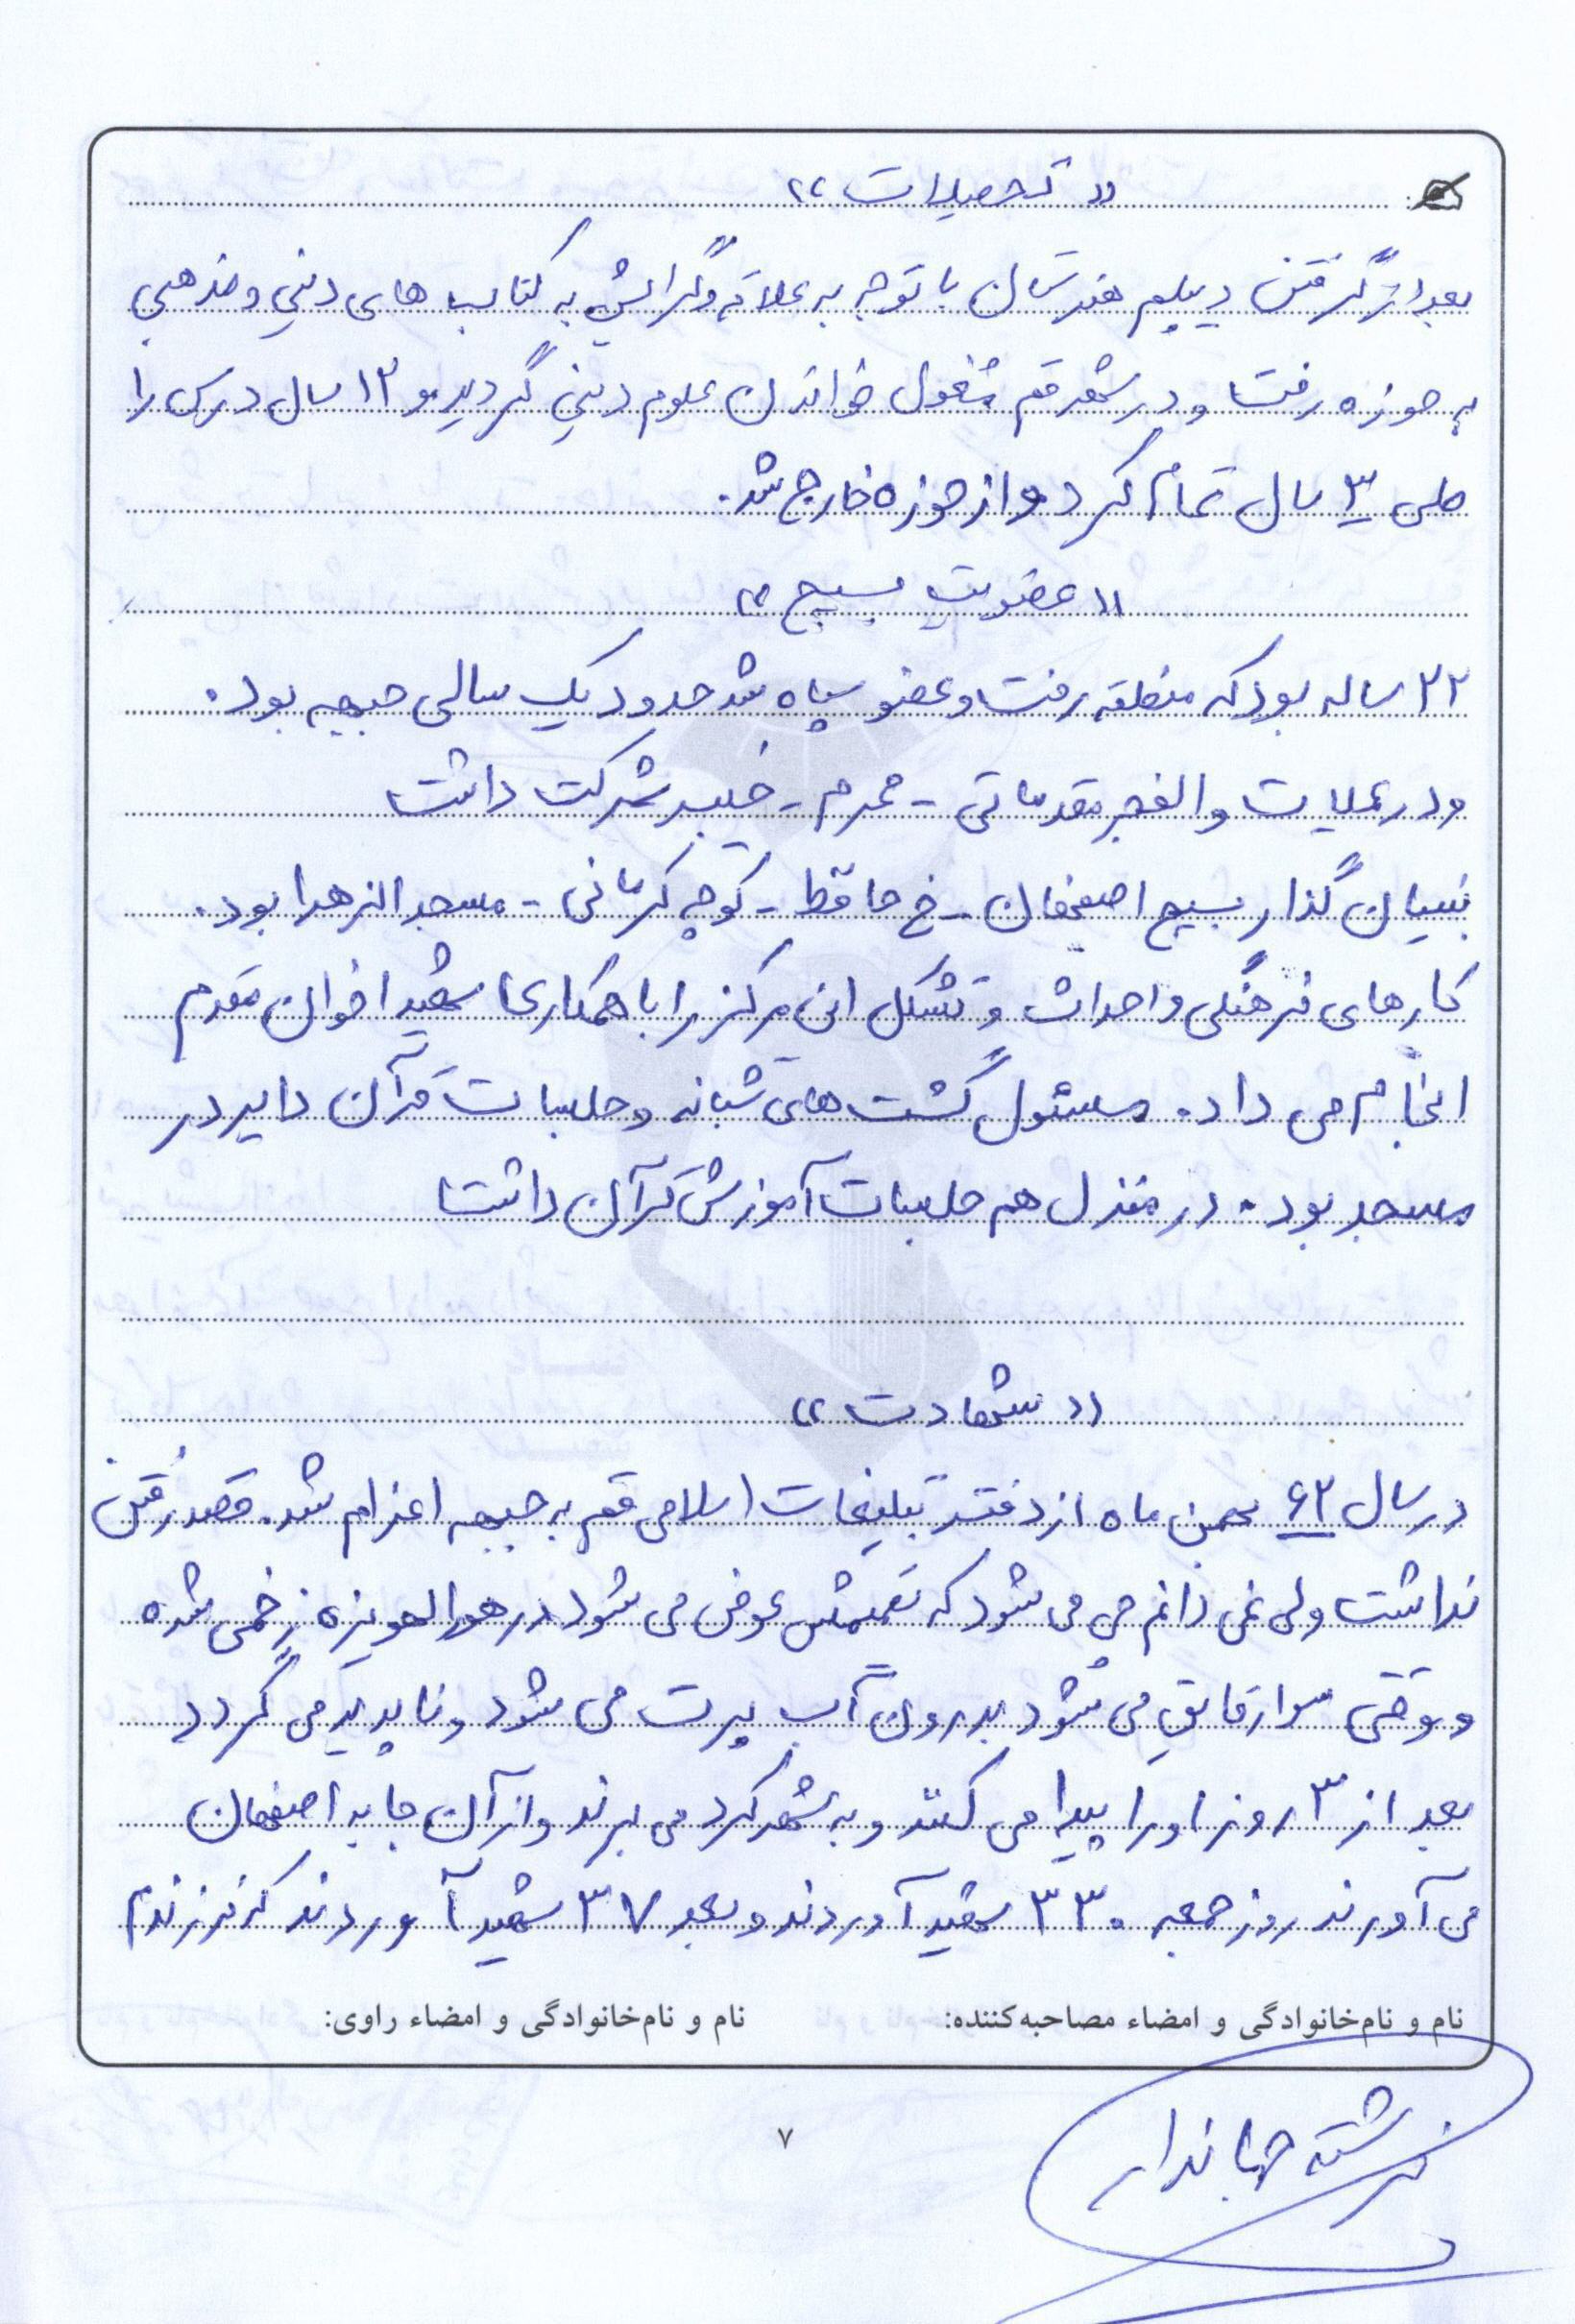 « تحصیلات »
بعد از گرفتن دیپلم هنرستان با توجه به علاقه و گرایش به کتاب های دینی و مذهبی
به حوزه رفت و در شهر قم مشغول خواندن علوم دینی گردید و ۱۲ سال درس را
طی ۳ سال تمام کرد و از حوزه خارج شد.
« عضویت بسیج »
۲۲ ساله بود که منطقه رفت و عضو سپاه شد حدود یک سالی جبهه بود.
و در عملیات والفجر مقدماتی - محرم - خیبر شرکت داشت
بنیان گذار بسیج اصفهان - خ حافظ - کوچه کرمانی - مسجد الزهرا بود.
کارهای فرهنگی و احداث و تشکل این مرکز را با همکاری شهید اخوان مقدم
انجام می داد. مسئول گشت های شبانه و جلسات قرآن دایر در
مسجد بود. در منزل هم جلسات آموزش قرآن داشت
« شهادت »
در سال ۶۲ بهمن ماه از دفتر تبلیغات اسلامی قم به جبهه اعزام شد. قصد رفتن
نداشت ولی نمی دانم چی می شود که تصمیمش عوض می شود در هورالهویزه زخمی شده
و وقتی سوار قایق می شود به درون آب پرت می شود و ناپدید می گردد
بعد از ۳ روز او را پیدا می کنند و به شهرکرد می برند و از آن جا به اصفهان
می آورند روز جمعه ۳۳۰ شهید آوردند و بعد ۳۷ شهید آوردند که فرزندم
نام و نام‌خانوادگی و امضاء مصاحبه‌کننده: نام و نام‌خانوادگی و امضاء راوی:
فرشته جهاندار
۷